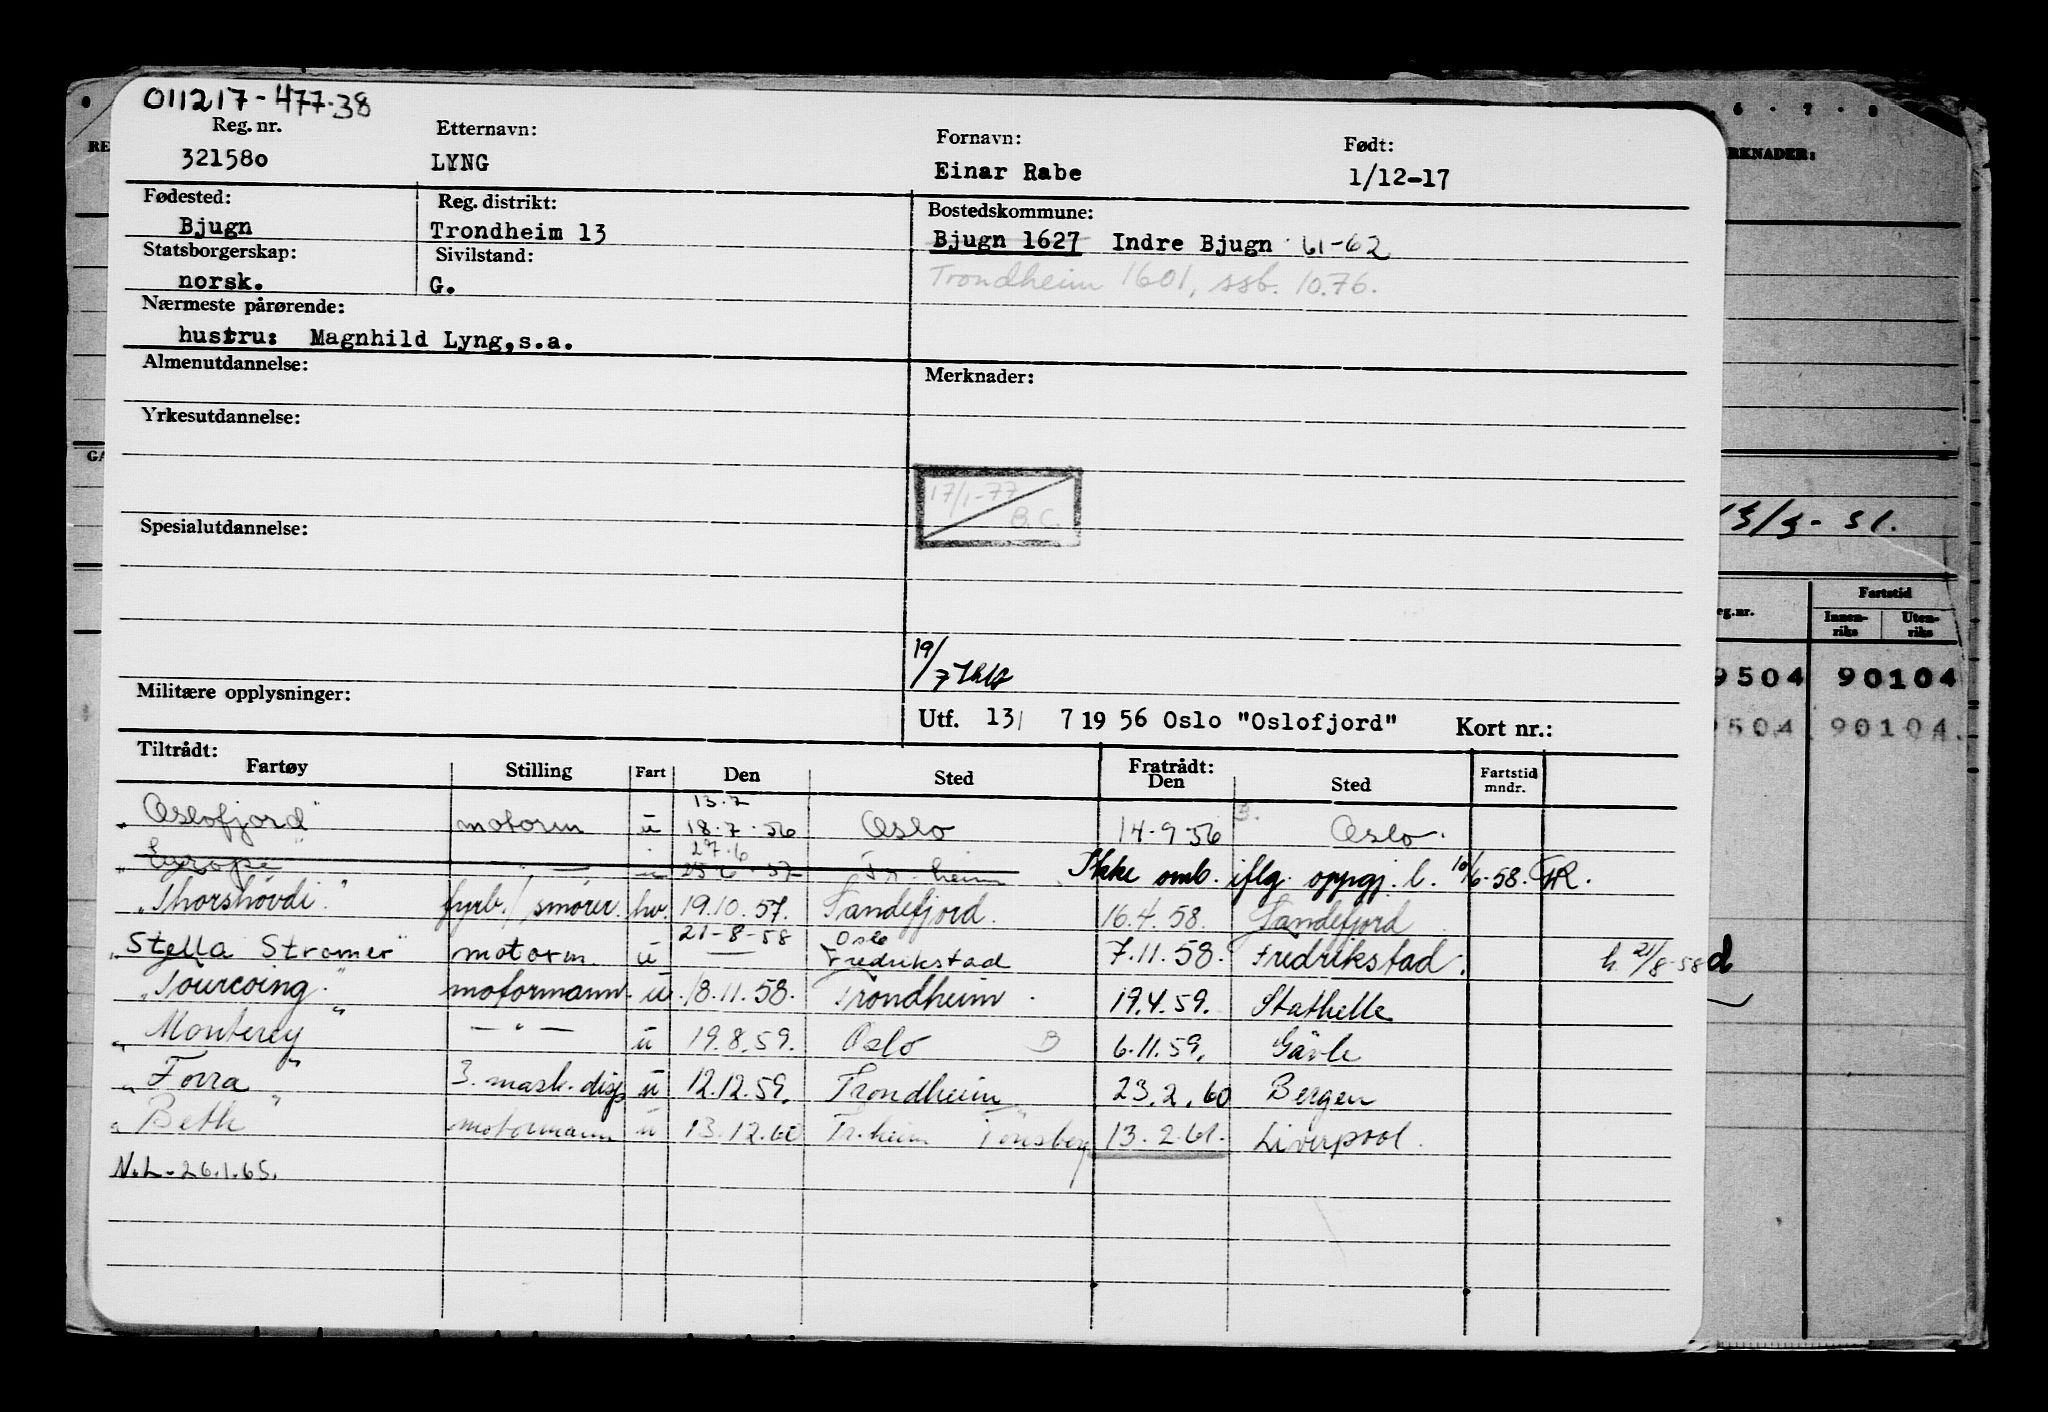 011217-477.38
Reg. nr. Etternavn: Fornavn: Født:
321580 LYNG Einar Rabe 1/12-17
Fødested: Reg. distrikt: Bostedskommune:
Bjugn Trondheim 13 Bjugn 1627 Indre Bjugn 61-62
Statsborgerskap: Sivilstand: Trondheim 1601, ssb. 10.76.
norsk. G.
Nærmeste pårørende:
hustru: Magnhild Lyng,s.a.
Almenutdannelse: Merknader:
Yrkesutdannelse:
17/1-77
B.C.
Spesialutdannelse:
19/7
Militære opplysninger:
Utf. 13/ 7 19 56 Oslo "Oslofjord" Kort nr.:
Tiltrådt: Fratrådt:
Fartøy Stilling Fart Den Sted Den Sted Fartstid mndr.
13.7
"Oslofjord" motorm u 18.7.56 Oslo 14-9-56 B. Oslo.
27.6
"Europe" — " — u 25.6.57 Tr.heim Ikke omb. iflg. oppgj. l. 10/6-58. TR.
"Thorshövdi" fyrb./smører. hv. 19.10.57. Sandefjord. 16.4.58. Sandefjord
21-8-58 Oslo
"Stella Stromer" motorm. u — Fredrikstad 7.11.58. Fredrikstad. h. 21/8-58 d
"Tourcoing" motormann. u. 18.11.58. Trondheim. 19.4.59. Stathelle
"Monterey" — " — u 19.8.59. Oslo B 6.11.59. Gävle
"Forra" 3. mask. disp u 12.12.59. Trondheim 23.2.60 Bergen
"Beth" motormann u 13.12.60 Tr.heim Tönsberg 13.2.61. Liverpool.
N.L-26.1.65.
RE
GA
6 . 7 . 8
RKNADER:
13/3-51.
eg.nr. Fartstid
Innen-riks Uten-riks
9504 90104
9504 90104.